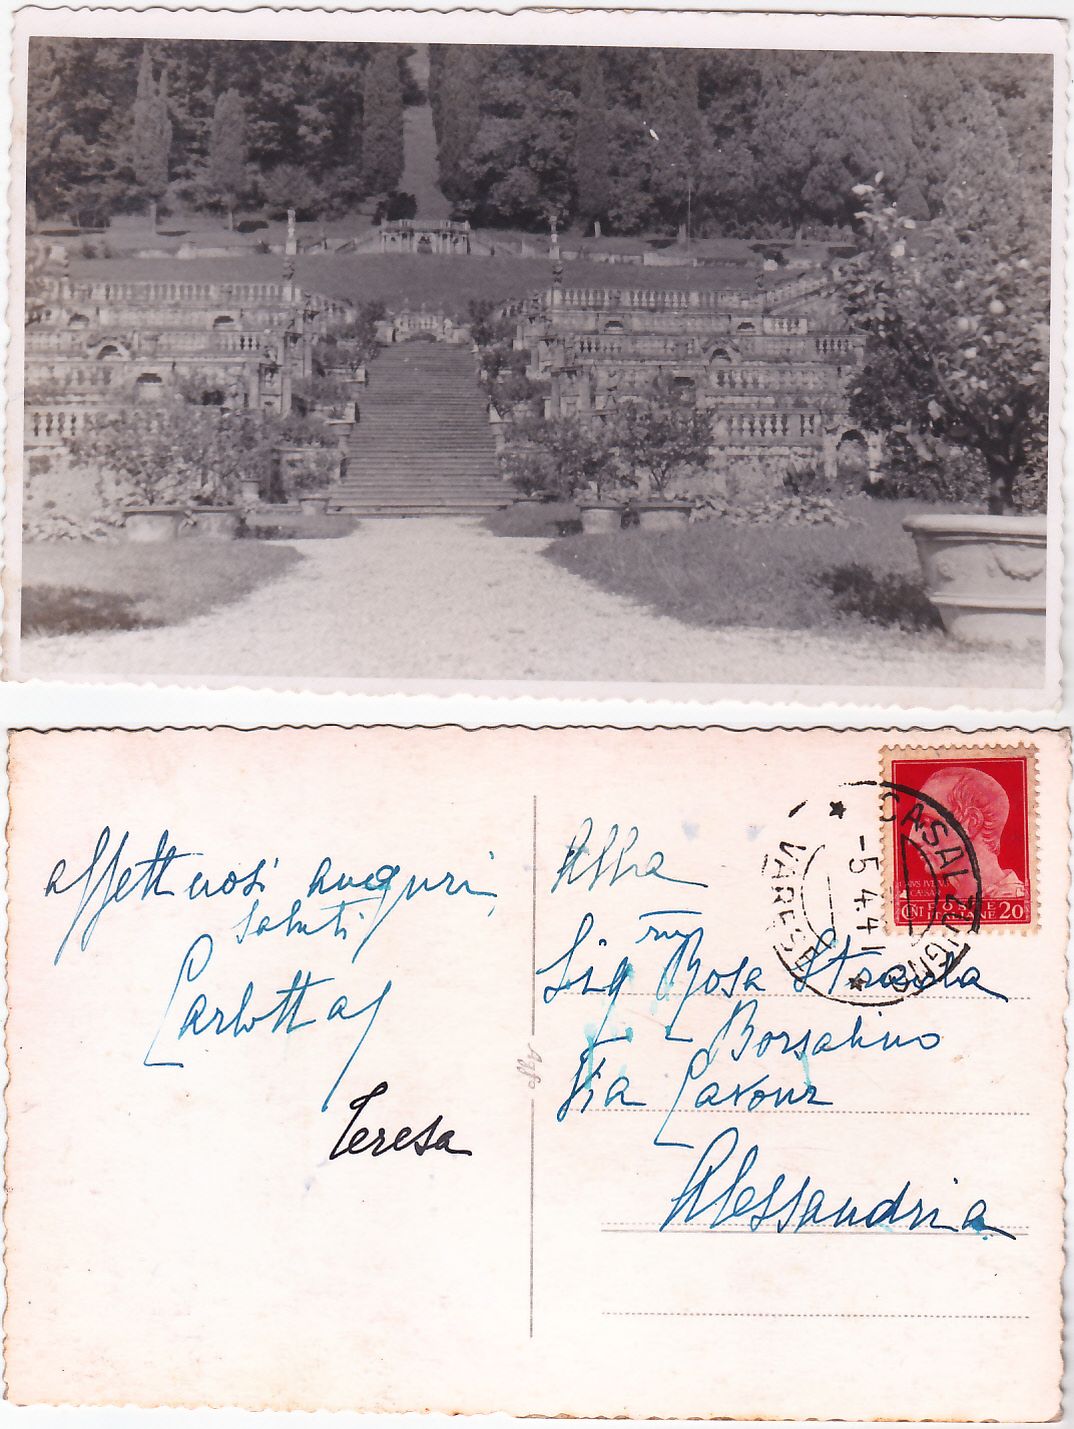 affettuosi auguri,
saluti
Carlotta
Teresa
Alla
Sig.na Rosa Straula
Borsalino
Via Cavour
Alessandria
Agfa
CASALZUIGNO
-5.4.41
VARESE
CAESAR
POSTE
CENT ITALIANE 20